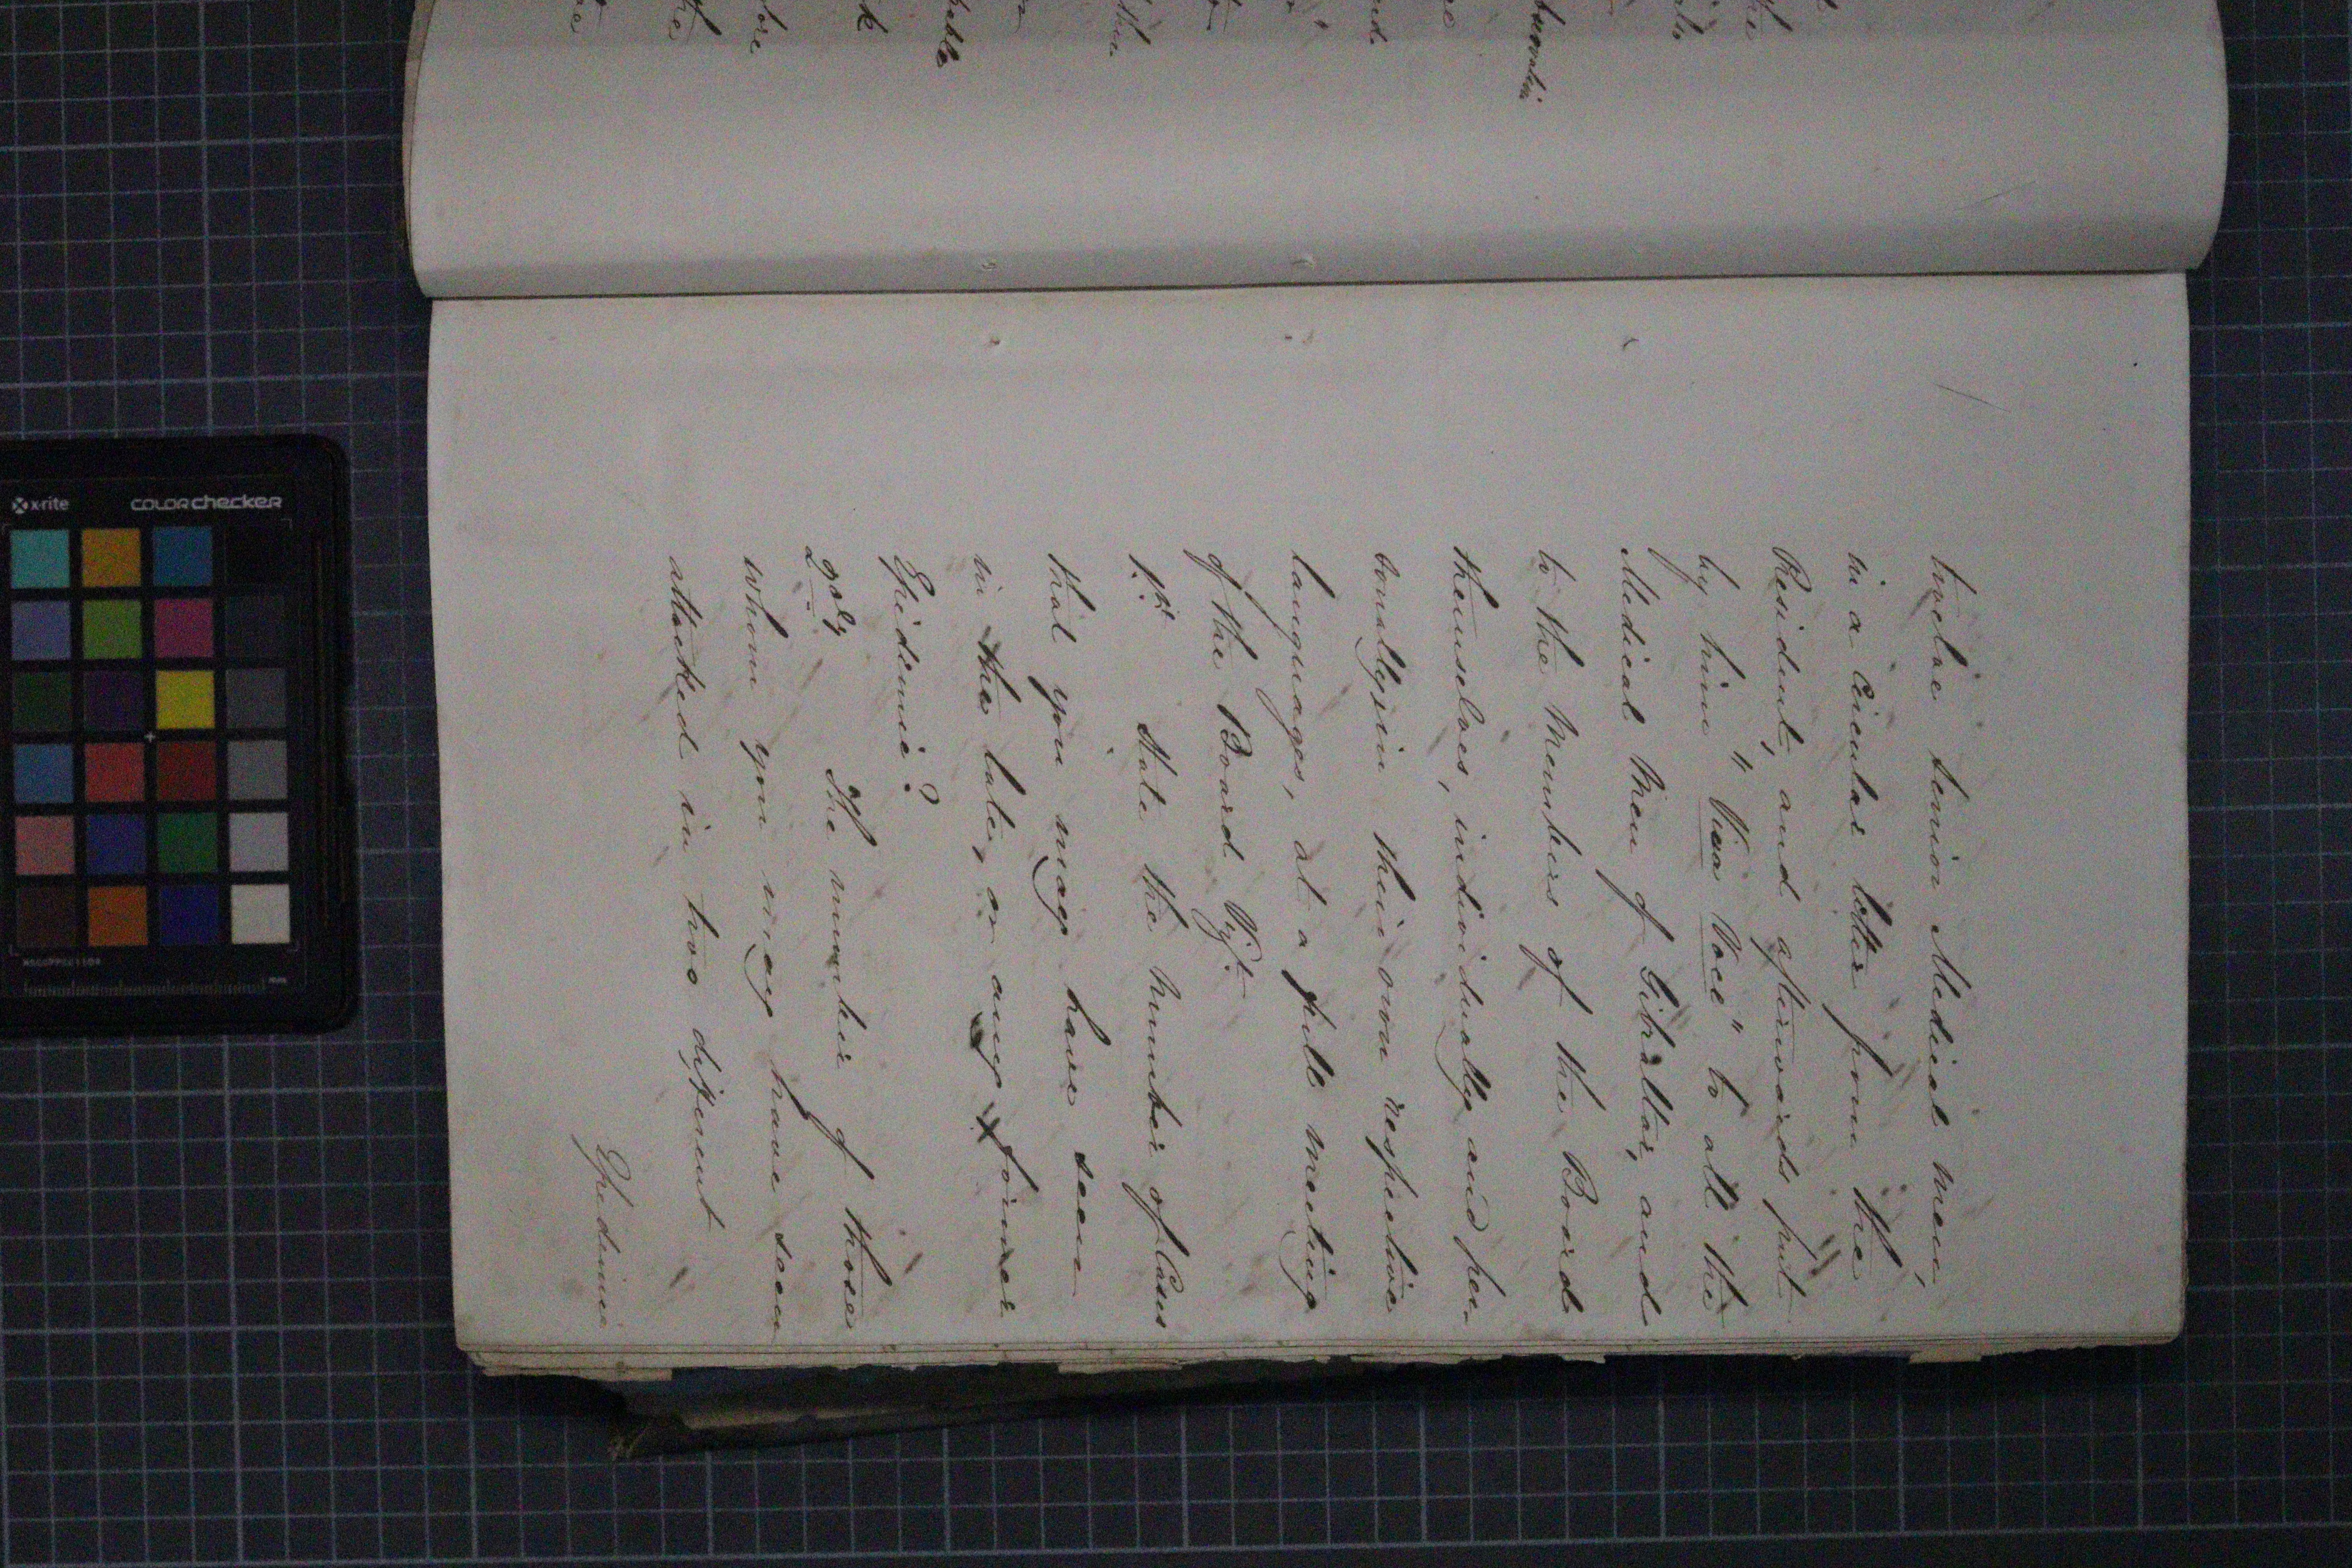 twelve senior Medical men,
in a Circular letter from the
President, and afterwards put
by him "Viva Voce" to all the
Medical Men of Gibraltar, and
to the Members of the Board
themselves, individually and per-
sonally, in their own respective
languages, at a full meeting
of the Board Vizt.
1st. State the number of Cases
that you may have seen
in the late, or any former
Epidemic?
2dly The number of those
whom you may have seen
attacked in two different
Epidemic
x-rite
colorchecker